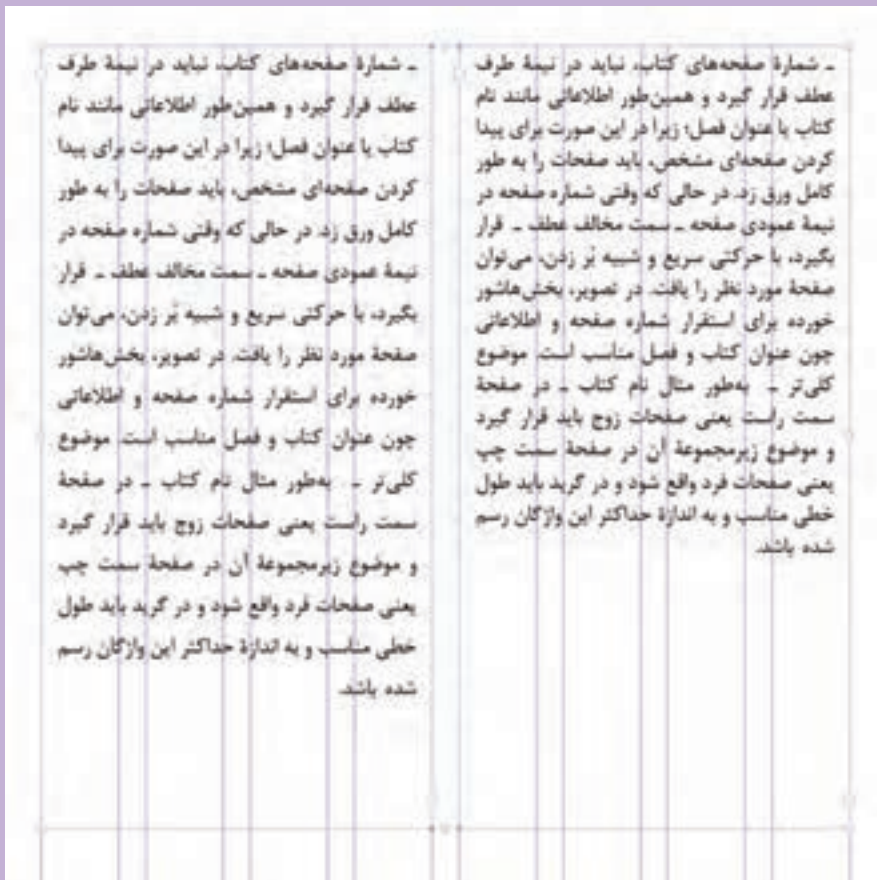 ـ شمارهٔ صفحه‌های کتاب، نباید در نیمهٔ طرف
عطف قرار گیرد و همین‌طور اطلاعاتی مانند نام
کتاب یا عنوان فصل؛ زیرا در این صورت برای پیدا
کردن صفحه‌ای مشخص، باید صفحات را به طور
کامل ورق زد. در حالی که وقتی شماره صفحه در
نیمهٔ عمودی صفحه ـ سمت مخالف عطف ـ قرار
بگیرد، با حرکتی سریع و شبیه بُر زدن، می‌توان
صفحهٔ مورد نظر را یافت. در تصویر، بخش‌هاشور
خورده برای استقرار شماره صفحه و اطلاعاتی
چون عنوان کتاب و فصل مناسب است. موضوع
کلی‌تر ـ به‌طور مثال نام کتاب ـ در صفحهٔ
سمت راست یعنی صفحات زوج باید قرار گیرد
و موضوع زیرمجموعهٔ آن در صفحهٔ سمت چپ
یعنی صفحات فرد واقع شود و در گرید باید طول
خطی مناسب و به اندازهٔ حداکثر این واژگان رسم
شده باشد.
ـ شمارهٔ صفحه‌های کتاب، نباید در نیمهٔ طرف
عطف قرار گیرد و همین‌طور اطلاعاتی مانند نام
کتاب یا عنوان فصل؛ زیرا در این صورت برای پیدا
کردن صفحه‌ای مشخص، باید صفحات را به طور
کامل ورق زد. در حالی که وقتی شماره صفحه در
نیمهٔ عمودی صفحه ـ سمت مخالف عطف ـ قرار
بگیرد، با حرکتی سریع و شبیه بُر زدن، می‌توان
صفحهٔ مورد نظر را یافت. در تصویر، بخش‌هاشور
خورده برای استقرار شماره صفحه و اطلاعاتی
چون عنوان کتاب و فصل مناسب است. موضوع
کلی‌تر ـ به‌طور مثال نام کتاب ـ در صفحهٔ
سمت راست یعنی صفحات زوج باید قرار گیرد
و موضوع زیرمجموعهٔ آن در صفحهٔ سمت چپ
یعنی صفحات فرد واقع شود و در گرید باید طول
خطی مناسب و به اندازهٔ حداکثر این واژگان رسم
شده باشد.